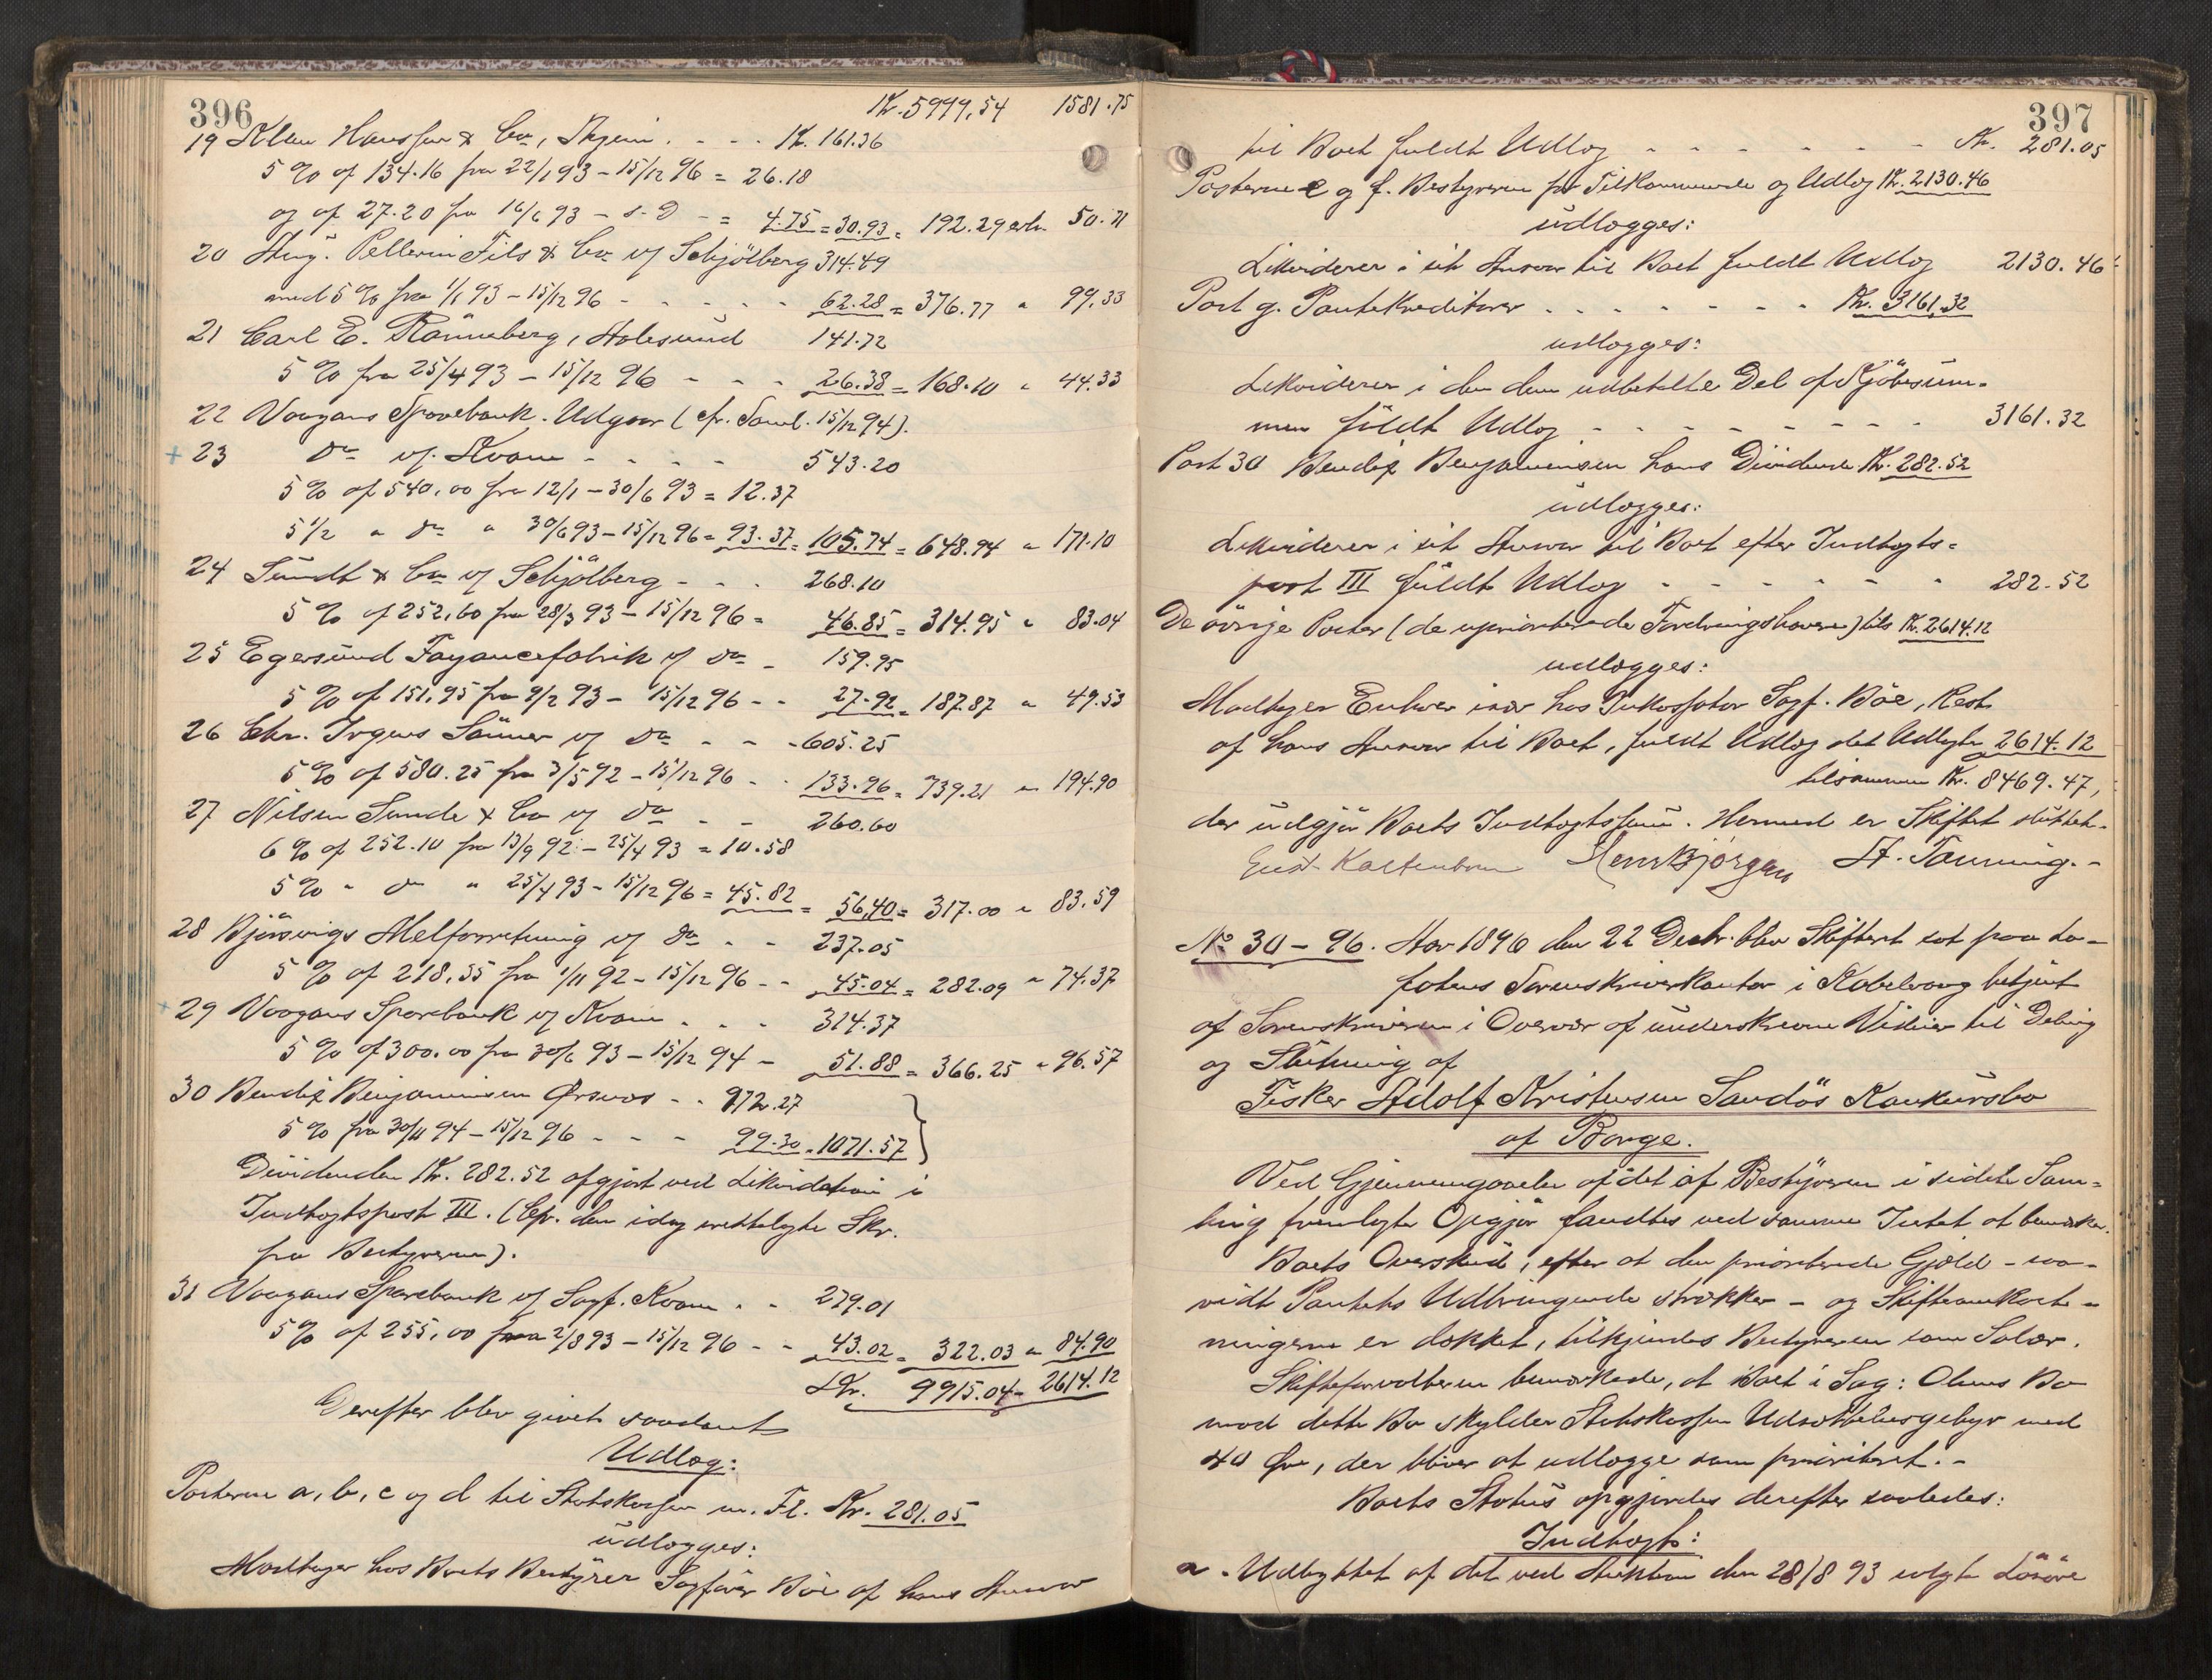 396
Kr. 5999,54 1581.75
19 Hansson & Co, - - - Kr. 161.36
5 % af 134.16 fra 22/1 93 - 15/12 96 = 26.18
og af 27.20 fra 16/6 93 - s. D - = 4.75 = 30.93 = 192.29 erh. 50.71
20 Aug. Pellerin Fils & Co v/ Schjölberg 314.49
med 5 % fra 1/1 93 - 15/12 96 - - - - - 62.28 = 376.77 " 99.33
21 Carl E. Rönneberg, Aalesund 141.72
5 % fra 25/4 93 - 15/12 96 - - - 26.38 = 168.10 " 44.33
22 Vaagans Sparebank. Udgaar (cfr. Saml. 15/12 94).
23 Do v/ Kvam - - - - 543.20
5 % af 540,00 fra 12/1 - 30/6 93 = 12.37
5 1/2 " do " 30/6 93 - 15/12 96 = 93.37 = 105.74 = 648.94 " 171.10
24 Sundt & Co v/ Schjölberg - - - 268.10
5 % af 252,60 fra 28/3 93 - 15/12 96 = 46.85 = 314.95 " 83.04
25 Egersund Fayancefabrik v/ do - 159.95
5 % af 151,95 fra 9/2 93 - 15/12 96 - - 27.92 = 187.87 " 49.53
26 Chr. Irgens Sönner v/ do - - - 605.25
5 % af 580.25 fra 3/5 92 - 15/12 96 - - 133.96 = 739.21 " 194.90
27 Nilsen Sunde & Co v/ do - - 260.60
6 % af 252.10 fra 13/9 92 - 25/4 93 = 10.58
5 % " do " 25/4 93 - 15/12 96 = 45.82 = 56,40 = 317.00 " 83.59
28 Bjørsvigs Melforretning v/ do - - 237.05
5 % af 218,55 fra 1/11 92 - 15/12 96 - - 45.04 = 282.09 " 74.37
29 Vaagans Sparebank v/ Kvam - - - 314.37
5 % af 300.00 fra 30/6 93 - 15/12 94 - 51.88 = 366.25 " 96.57
30 Bendix Benjaminsen Ørsnes - - 972.27
5 % fra 30/11 94 - 15/12 96 - - - 99.30 = 1071.57
Dividenden Kr. 282.52 afgjort ved Likvidation i
Indtægtspost III. (Cfr. den idag irettelagte Skr.
fra Bestyreren).
31 Vaagans Sparebank v/ Sagf. Kvam - - 279.01
5 % af 255,00 fra 2/8 93 - 15/12 96 - - 43.02 = 322.03 " 84.90
Kr. 9915.04 - 2614.12
Derefter blev givet saadant
Udlæg:
Posterne a, b, c og d til Statskassen m. Fl. Kr. 281.05
udlægges:
Modtager hos Boets Bestyrer Sagfører Böe af hans Ansvar
397
til Boet fuldt Udlæg - - - - - - - Kr. 281.05
Posterne e og f. Bestyreren for Tilkommende og Udlæg Kr. 2130.46
udlægges:
Likviderer i sit Ansvar til Boet fuldt Udlæg 2130.46
Post g. Pantekreditorer - - - - - - - Kr. 3161,32
udlægges:
Likviderer i den dem udbetalte Del af Kjöbesum-
men fuldt Udlæg - - - - - - - - 3161.32
Post 30 Bendix Benjaminsen hans Dividende Kr. 282.52
udlægges:
Likviderer i sit Ansvar til Boet efter Indtægts-
post III fuldt Udlæg - - - - - - 282.52
De övrige Poster (de uprioriterede Fordringshavere) tils. Kr. 2614.12
udlægges:
Modtager Enhver især hos Inkassator Sagf. Böe, Rest
af hans Ansvar til Boet, fuldt Udlæg det Udlagte 2614.12
tilsammen Kr. 8469.47,
der udgjör Boets Indtægtssum. Hermed er Skiftet sluttet.
Henr Bjørgan A. Tönning. -
No 30 - 96. Aar 1896 den 22 Decbr. blev Skifteret sat paa Lo-
fotens Sorenskriverkontor i Kabelvaag betjent
af Sorenskriveren i Overvær af underskrevne Vidner til Deling
og Slutning af
Fisker Adolf Kristensen Sandös Konkursbo
af Borge.
Ved Gjennemgaaelse af det af Bestyreren i sidste Sam-
ling fremlagte Opgjør fandtes ved samme Intet at bemærke.
Boets Overskud, efter at den prioriterede Gjæld - saa-
vidt Pantets Udbringende strækker - og Skifteomkost-
ningerne er dækket, tilkjendes Bestyreren som Salær.
Skifteforvalteren bemærkede, at Boet i Sag: Olsens Bo
mod dette Bo skylder Statskassen Udsættelsesgebyr med
40 Øre, der bliver at udlægge som prioriteret. -
Boets Status opgjordes derefter saaledes:
Indtægt:
a. Udbyttet af det ved Auktion den 28/8 93 solgte Lösöre